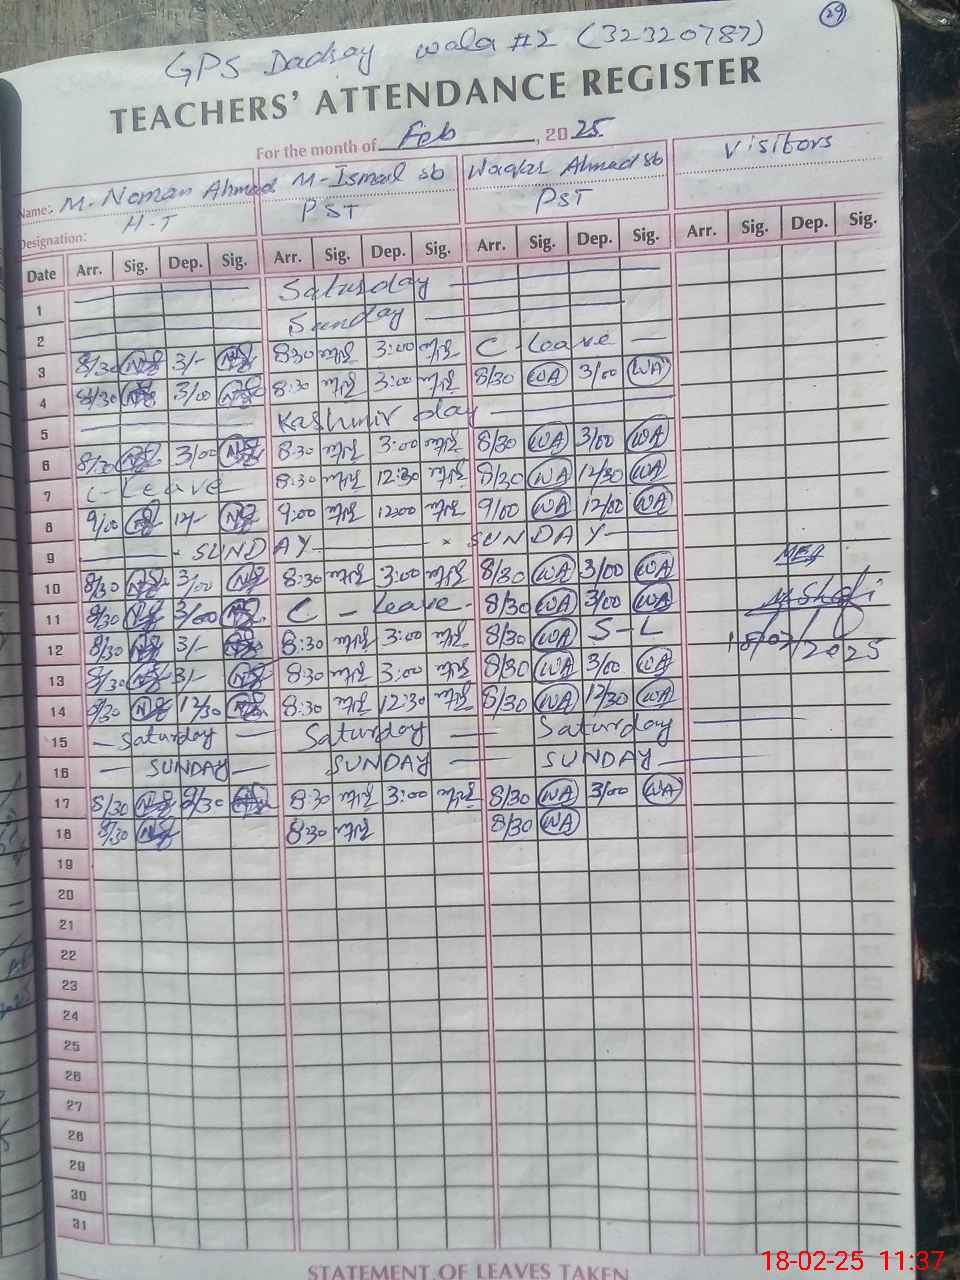 29
GPS Dachay wala #2 (32320787)
TEACHERS' ATTENDANCE REGISTER
For the month of Feb, 2025
Name: M. Noman Ahmad M-Ismail sb Waqar Ahmad sb Visitors
Designation: H-T PST PST
Date Arr. Sig. Dep. Sig. Arr. Sig. Dep. Sig. Arr. Sig. Dep. Sig. Arr. Sig. Dep. Sig.
1 Saturday
2 Sunday
3 8/30 3/- 8:30 3:00 C leave
4 8/30 3/00 8:30 3:00 8/30 WA 3/00 WA
5 Kashmir day
6 8/30 3/00 8:30 3:00 8/30 WA 3/00 WA
7 C-Leave 8:30 12:30 8/30 WA 12/30 WA
8 9/00 12/- 9:00 12:00 9/00 WA 12/00 WA
9 SUNDAY SUNDAY
10 8/30 3/00 8:30 3:00 8/30 WA 3/00 WA
11 8/30 3/00 C - Leave 8/30 WA 3/00 WA
12 8/30 3/- 8:30 3:00 8/30 WA S-L
13 8/30 3/- 8:30 3:00 8/30 WA 3/00 WA
14 8/30 12/30 8:30 12:30 8/30 WA 12/30 WA
15 Saturday Saturday Saturday
16 SUNDAY SUNDAY SUNDAY
17 8/30 8:30 3:00 8/30 WA 3/00 WA
18 8/30 8:30 8/30 WA
M. Shafi
18/02/2025
19
20
21
22
23
24
25
26
27
28
29
30
31
STATEMENT OF LEAVES TAKEN
18-02-25 11:37